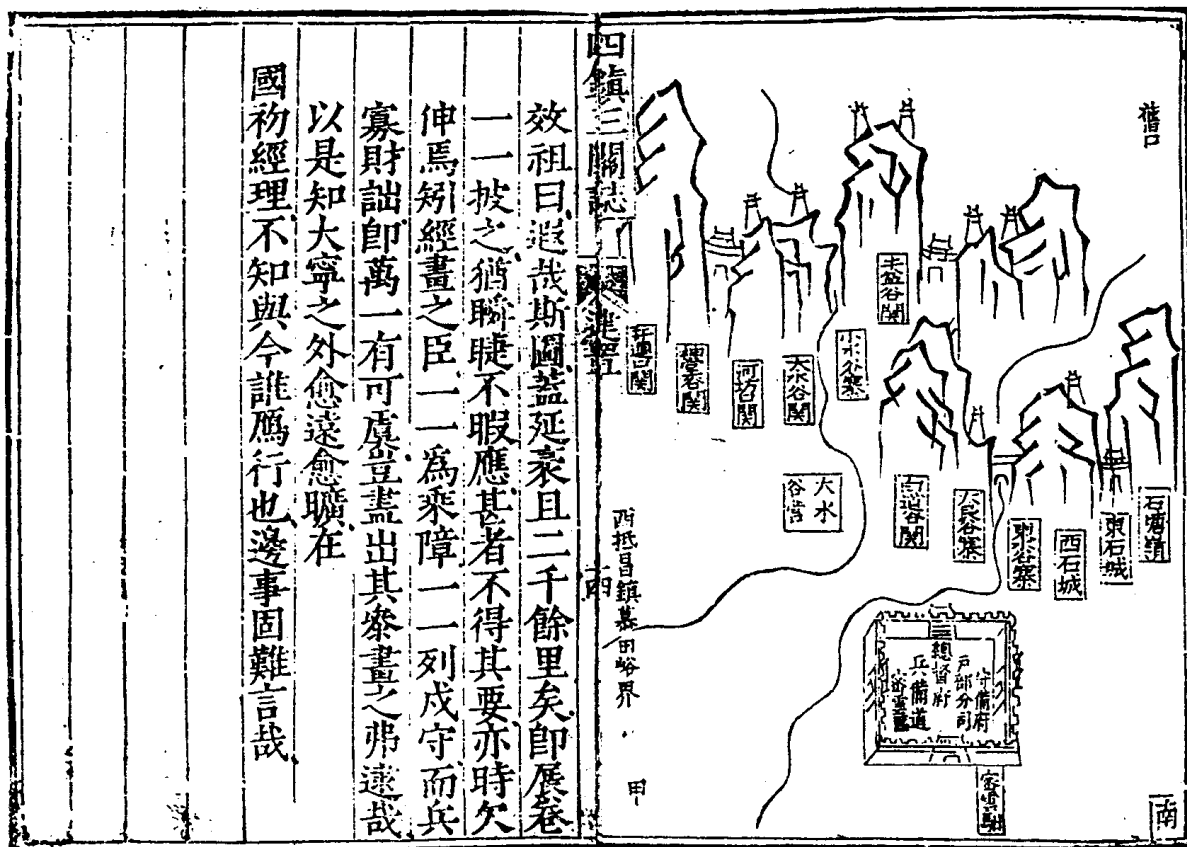 舊口
南
石塘嶺
東石城
西石城
東水谷寨
大良谷寨
白道谷関
丰盈谷関
小水谷寨
大水谷関
河坊口関
神堂谷関
开連口関
大水
谷营
守備府
户部分司
總督府
兵備道
西抵昌鎮慕田峪界
四鎮三關誌
建置
效祖曰遐哉斯圖葢延袤且二千餘里矣卽展卷
一一披之猶瞬睫不暇應甚者不得其要亦時欠
伸焉矧經畫之臣一一爲乘障一一列戍守而兵
寡財詘卽萬一有可虞豈盡出其叅畫之弗逮哉
以是知大寧之外愈遠愈曠在
國初經理不知與今誰鴈行也邊事固難言哉